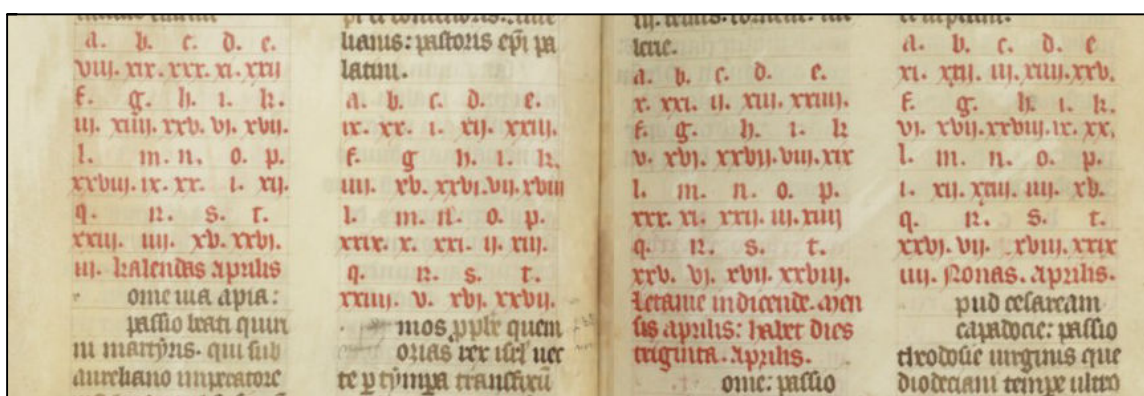 a. b. c. d. e.
viii. xix. xxx. xi. xxii
f. g. h. i. k.
iii. xiiii. xxv. vi. xvii.
l. m. n. o. p.
xxviii. ix. xx. i. xii.
q. r. s. t.
xxiii. iiii. xv. xxvi.
iii. kalendas aprilis
ome uia apia:
passio beati quiri
ni martyris. qui sub
aureliano imperatore
lianus: pastoris ep̄i pa
latini.
a. b. c. d. e.
ix. xx. i. xii. xxiii.
f. g h. i. k.
iiii. xv. xxvi. vii. xviii
l. m. n. o. p.
xxix. x. xxi. ii. xiii.
q. r. s. t.
xxiiii. v. xvi. xxvii.
mos quem
rex isrl nec
te p tympa transfixū
a. b. c. d. e.
x. xxi. ii. xiii. xxiiii.
f. g. h. i. k
v. xvi. xxvii. viii. xix
l. m. n. o. p.
xxx. xi. xxii. iii. xiiii
q. r. s. t.
xxv. vi. xvii. xxviii.
Letanie indicende. Men
sis aprilis: habet dies
triginta. Aprilis.
ome: passio
a. b. c. d. e
xi. xxii. iii. xiiii. xxv.
f. g. h. i. k
vi. xvii. xxviii. ix. xx.
l. m. n. o. p.
i. xii. xxiii. iiii. xv.
q. r. s. t.
xxvi. vii. xviii. xxix
iiii. Nonas. aprilis.
pud cesaream
capadocie: passio
theodosie uirginis que
diocleciani tempe ultro